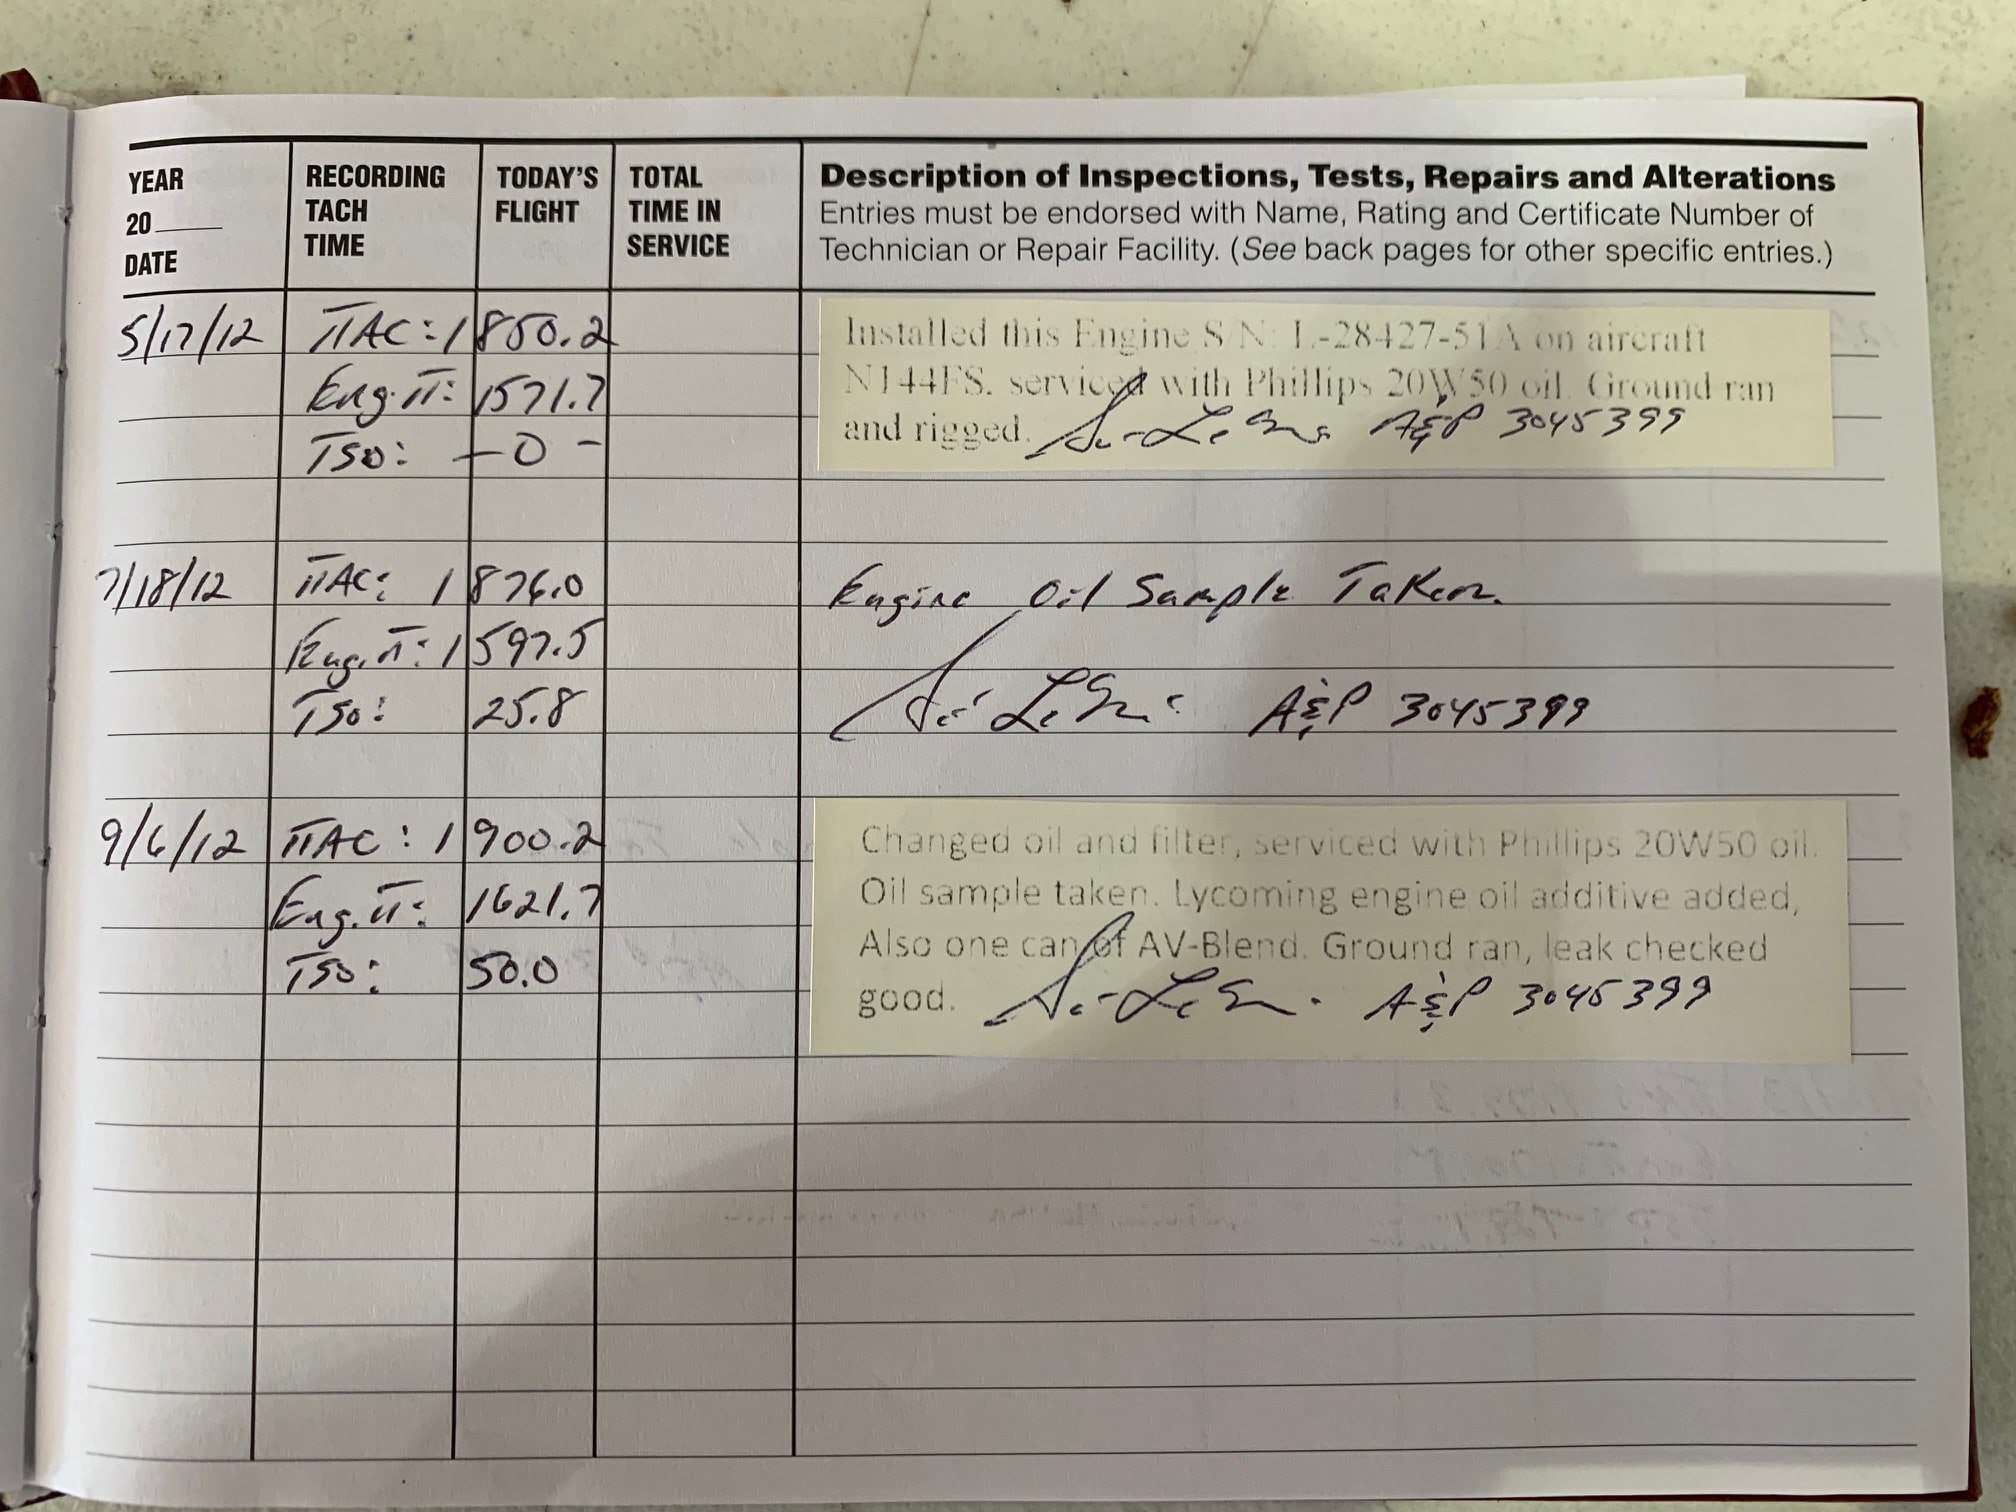 YEAR
20____
DATE
RECORDING
TACH
TIME
TODAY'S
FLIGHT
TOTAL
TIME IN
SERVICE
Description of Inspections, Tests, Repairs and Alterations
Entries must be endorsed with Name, Rating and Certificate Number of
Technician or Repair Facility. (See back pages for other specific entries.)
5/17/12 TTAC: 1850.2
Eng. TT: 1571.7
TSO: -0-
Installed this Engine S/N: L-28427-51A on aircraft
N144FS. serviced with Phillips 20W50 oil. Ground ran
and rigged. A&P 3045399
7/18/12 TTAC: 1876.0 Engine Oil Sample Taken.
Eng. TT: 1597.5
TSO: 25.8 A&P 3045399
9/6/12 TTAC: 1900.2
Eng. TT: 1621.7
TSO: 50.0
Changed oil and filter, serviced with Phillips 20W50 oil.
Oil sample taken. Lycoming engine oil additive added,
Also one can of AV-Blend. Ground ran, leak checked
good. A&P 3045399